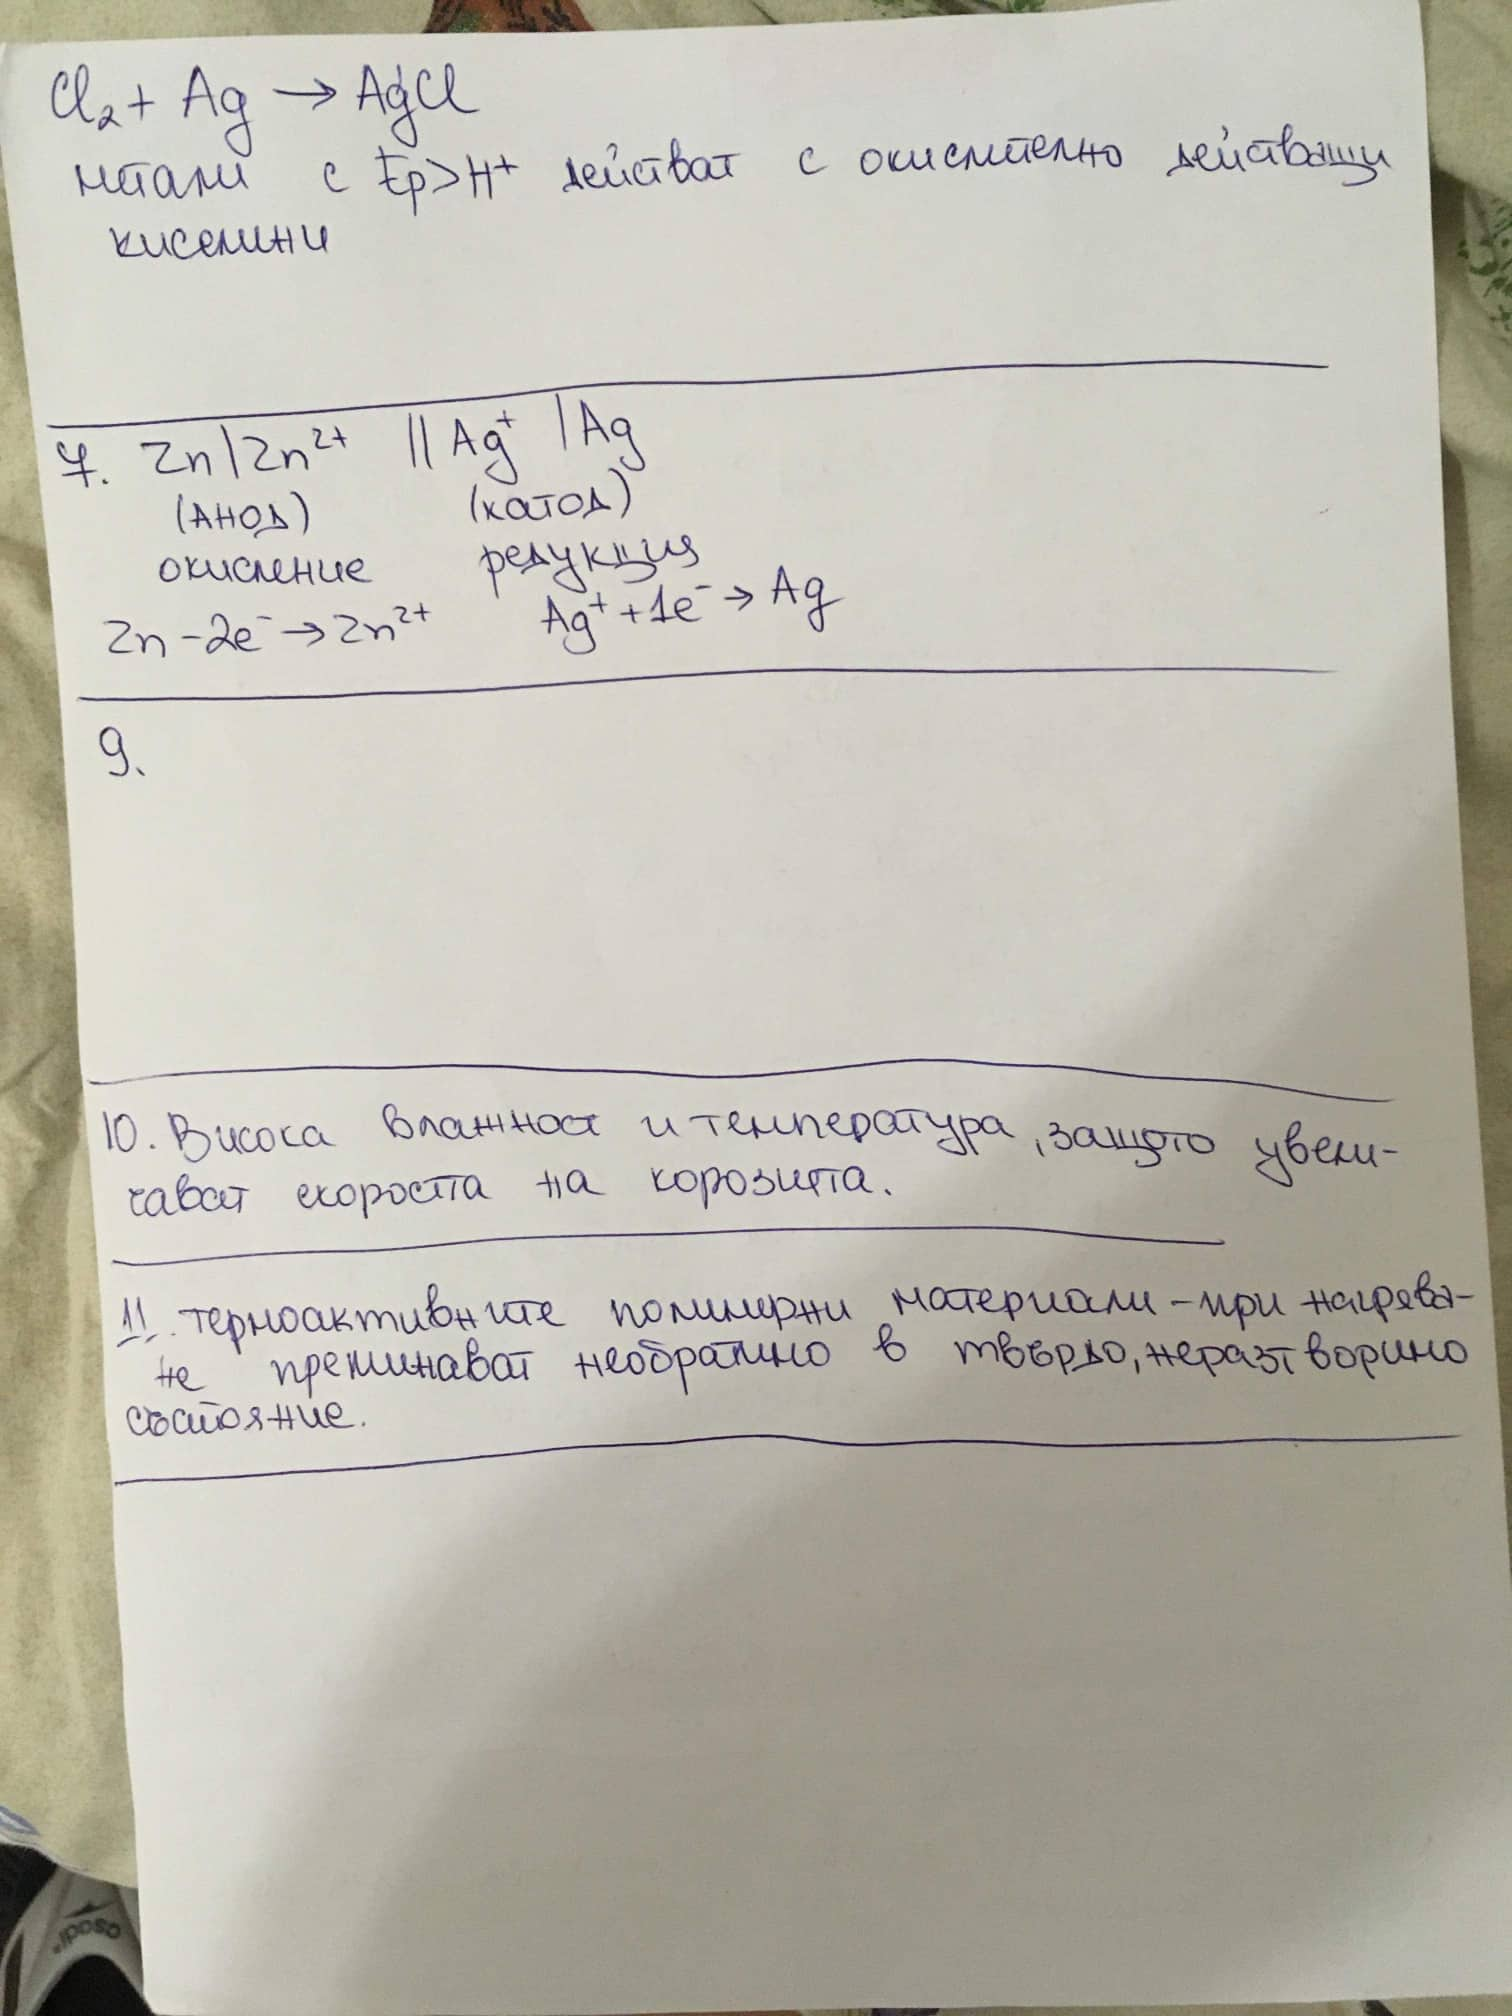 Cl₂ + Ag → AgCl
метали с Ep>H⁺ действат с окислително действащи
киселини
7. Zn|Zn²⁺ || Ag⁺ |Ag
(АНОД) (катод)
окисление редукция
Zn - 2e⁻ → Zn²⁺ Ag⁺ + 1e⁻ → Ag
9.
10. Висока влажност и температура, защото увели-
чават скоростта на корозията.
11. термоактивните полимерни материали - при нагрява-
не преминават необратимо в твърдо, неразтворимо
състояние.